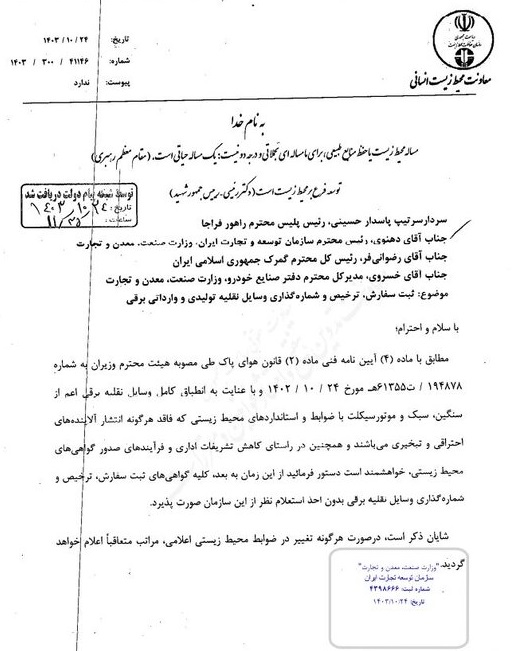 ریاست جمهوری
سازمان حفاظت محیط زیست
معاونت محیط زیست انسانی
تاریخ: ۱۴۰۳/۱۰/۲۴
شماره: ۴۱۱۴۶ / ۳۰۰ / ۱۴۰۳
پیوست: ندارد
به نام خدا
مساله محیط زیست یا حفظ منابع طبیعی، برای ما مساله ای تجملاتی و درجه دو نیست؛ یک مساله حیاتی است. (مقام معظم رهبری)
توسعه فرع بر محیط زیست است (دکتر رئیسی، رییس جمهور شهید)
توسط شبکه پیام دولت دریافت شد
تاریخ: ۱۴۰۳/۱۰/۲۴
ساعت: ۱۱/۳۵
سردار سرتیپ پاسدار حسینی، رئیس پلیس محترم راهور فراجا
جناب آقای دهنوی، رئیس محترم سازمان توسعه و تجارت ایران، وزارت صنعت، معدن و تجارت
جناب آقای رضوانی‌فر، رئیس کل محترم گمرک جمهوری اسلامی ایران
جناب اقای خسروی، مدیرکل محترم دفتر صنایع خودرو، وزارت صنعت، معدن و تجارت
موضوع: ثبت سفارش، ترخیص و شماره‌گذاری وسایل نقلیه تولیدی و وارداتی برقی
با سلام و احترام؛
مطابق با ماده (۴) آیین نامه فنی ماده (۲) قانون هوای پاک طی مصوبه هیئت محترم وزیران به شماره
۱۹۴۸۷۸ / ت۶۱۳۵۵هـ مورخ ۲۴ / ۱۰ / ۱۴۰۲ و با عنایت به انطباق کامل وسایل نقلیه برقی اعم از
سنگین، سبک و موتورسیکلت با ضوابط و استانداردهای محیط زیستی که فاقد هرگونه انتشار آلاینده‌های
احتراقی و تبخیری می‌باشند و همچنین در راستای کاهش تشریفات اداری و فرآیندهای صدور گواهی‌های
محیط زیستی، خواهشمند است دستور فرمائید از این زمان به بعد، کلیه گواهی‌های ثبت سفارش، ترخیص و
شماره‌گذاری وسایل نقلیه برقی بدون اخذ استعلام نظر از این سازمان صورت پذیرد.
شایان ذکر است، درصورت هرگونه تغییر در ضوابط محیط زیستی اعلامی، مراتب متعاقباً اعلام خواهد
گردید.
"وزارت صنعت، معدن و تجارت"
سازمان توسعه تجارت ایران
شماره ثبت: ۴۳۹۸۶۶۶
تاریخ: ۱۴۰۳/۱۰/۲۴